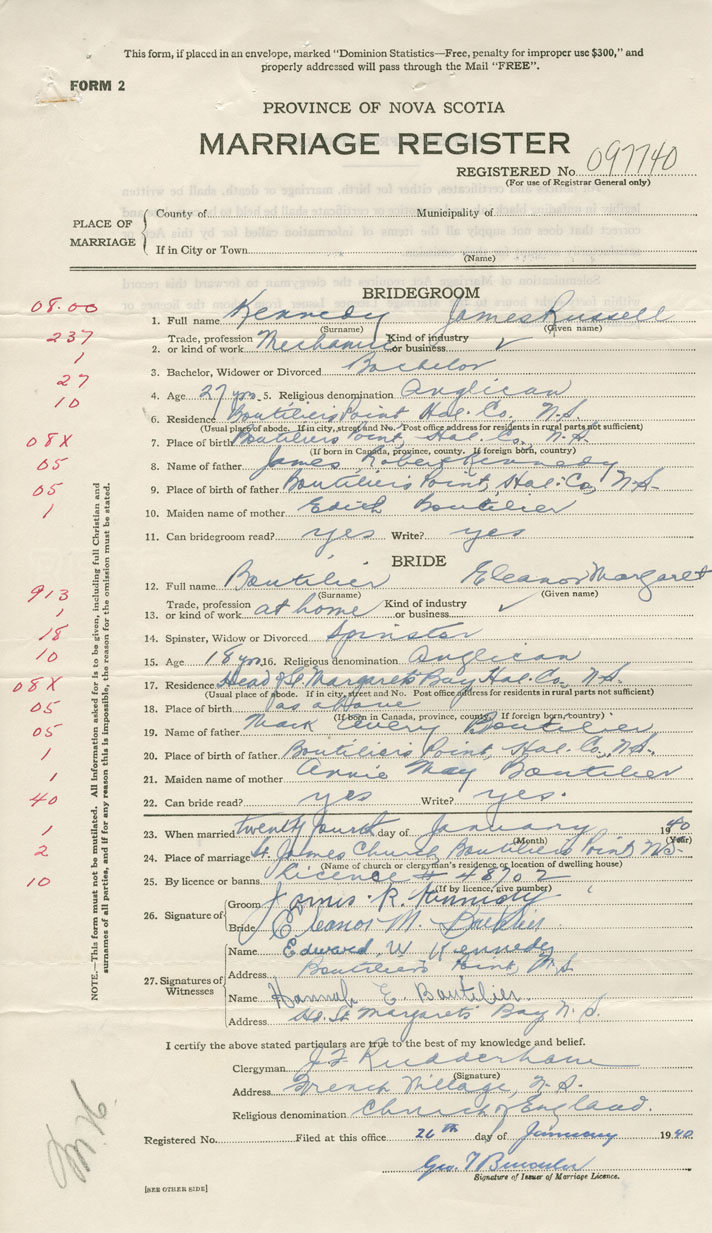 This form, if placed in an envelope, marked "Dominion Statistics—Free, penalty for improper use $300," and
properly addressed will pass through the Mail "FREE".
FORM 2
PROVINCE OF NOVA SCOTIA
MARRIAGE REGISTER
REGISTERED No. 097740
(For use of Registrar General only)
PLACE OF MARRIAGE
County of Municipality of
If in City or Town
(Name)
BRIDEGROOM
08.00
1. Full name Kennedy James Russell
(Surname) (Given name)
237
2. Trade, profession or kind of work Mechanic Kind of industry or business ✓
1
3. Bachelor, Widower or Divorced Bachelor
27
4. Age 27 yrs. 5. Religious denomination Anglican
10
6. Residence Boutiliers Point Hal. Co. N.S.
(Usual place of abode. If in city, street and No. Post office address for residents in rural parts not sufficient)
08X
7. Place of birth Boutiliers Point, Hal. Co. N.S.
(If born in Canada, province, county. If foreign born, country)
05
8. Name of father James Robert Kennedy
05
9. Place of birth of father Boutiliers Point, Hal. Co. N.S.
1
10. Maiden name of mother Edith Boutilier
11. Can bridegroom read? yes Write? yes
BRIDE
12. Full name Boutilier Eleanor Margaret
(Surname) (Given name)
913
13. Trade, profession or kind of work at home Kind of industry or business ✓
1
14. Spinster, Widow or Divorced Spinster
18
15. Age 18 yrs. 16. Religious denomination Anglican
10
17. Residence Head of St. Margarets Bay Hal. Co. N.S.
(Usual place of abode. If in city, street and No. Post office address for residents in rural parts not sufficient)
08X
18. Place of birth as above
(If born in Canada, province, county. If foreign born, country)
05
19. Name of father Mark Avery Boutilier
05
20. Place of birth of father Boutiliers Point, Hal. Co., N.S.
1
21. Maiden name of mother Annie May Boutilier
1
22. Can bride read? yes Write? yes.
40
23. When married twenty fourth day of January 1940
(Month) (Year)
1
24. Place of marriage St. James Church Boutiliers Point, N.S.
(Name of church or clergyman's residence or location of dwelling house)
2
25. By licence or banns Licence # 48702
(If by licence, give number)
10
26. Signature of
Groom James R. Kennedy
Bride Eleanor M. Boutilier
27. Signatures of Witnesses
Name Edward W Kennedy
Address Boutiliers Point, N.S.
Name Hannah E. Boutilier
Address Hd. St. Margarets Bay N.S.
I certify the above stated particulars are true to the best of my knowledge and belief.
Clergyman J. F. Rudderham
(Signature)
Address French Village, N.S.
Religious denomination Church of England.
Registered No. Filed at this office 26th day of January 1940
Geo. T
Signature of Issuer of Marriage Licence.
[SEE OTHER SIDE]
NOTE.—This form must not be mutilated. All information asked for is to be given, including full Christian and
surnames of all parties, and if for any reason this is impossible, the reason for the omission must be stated.